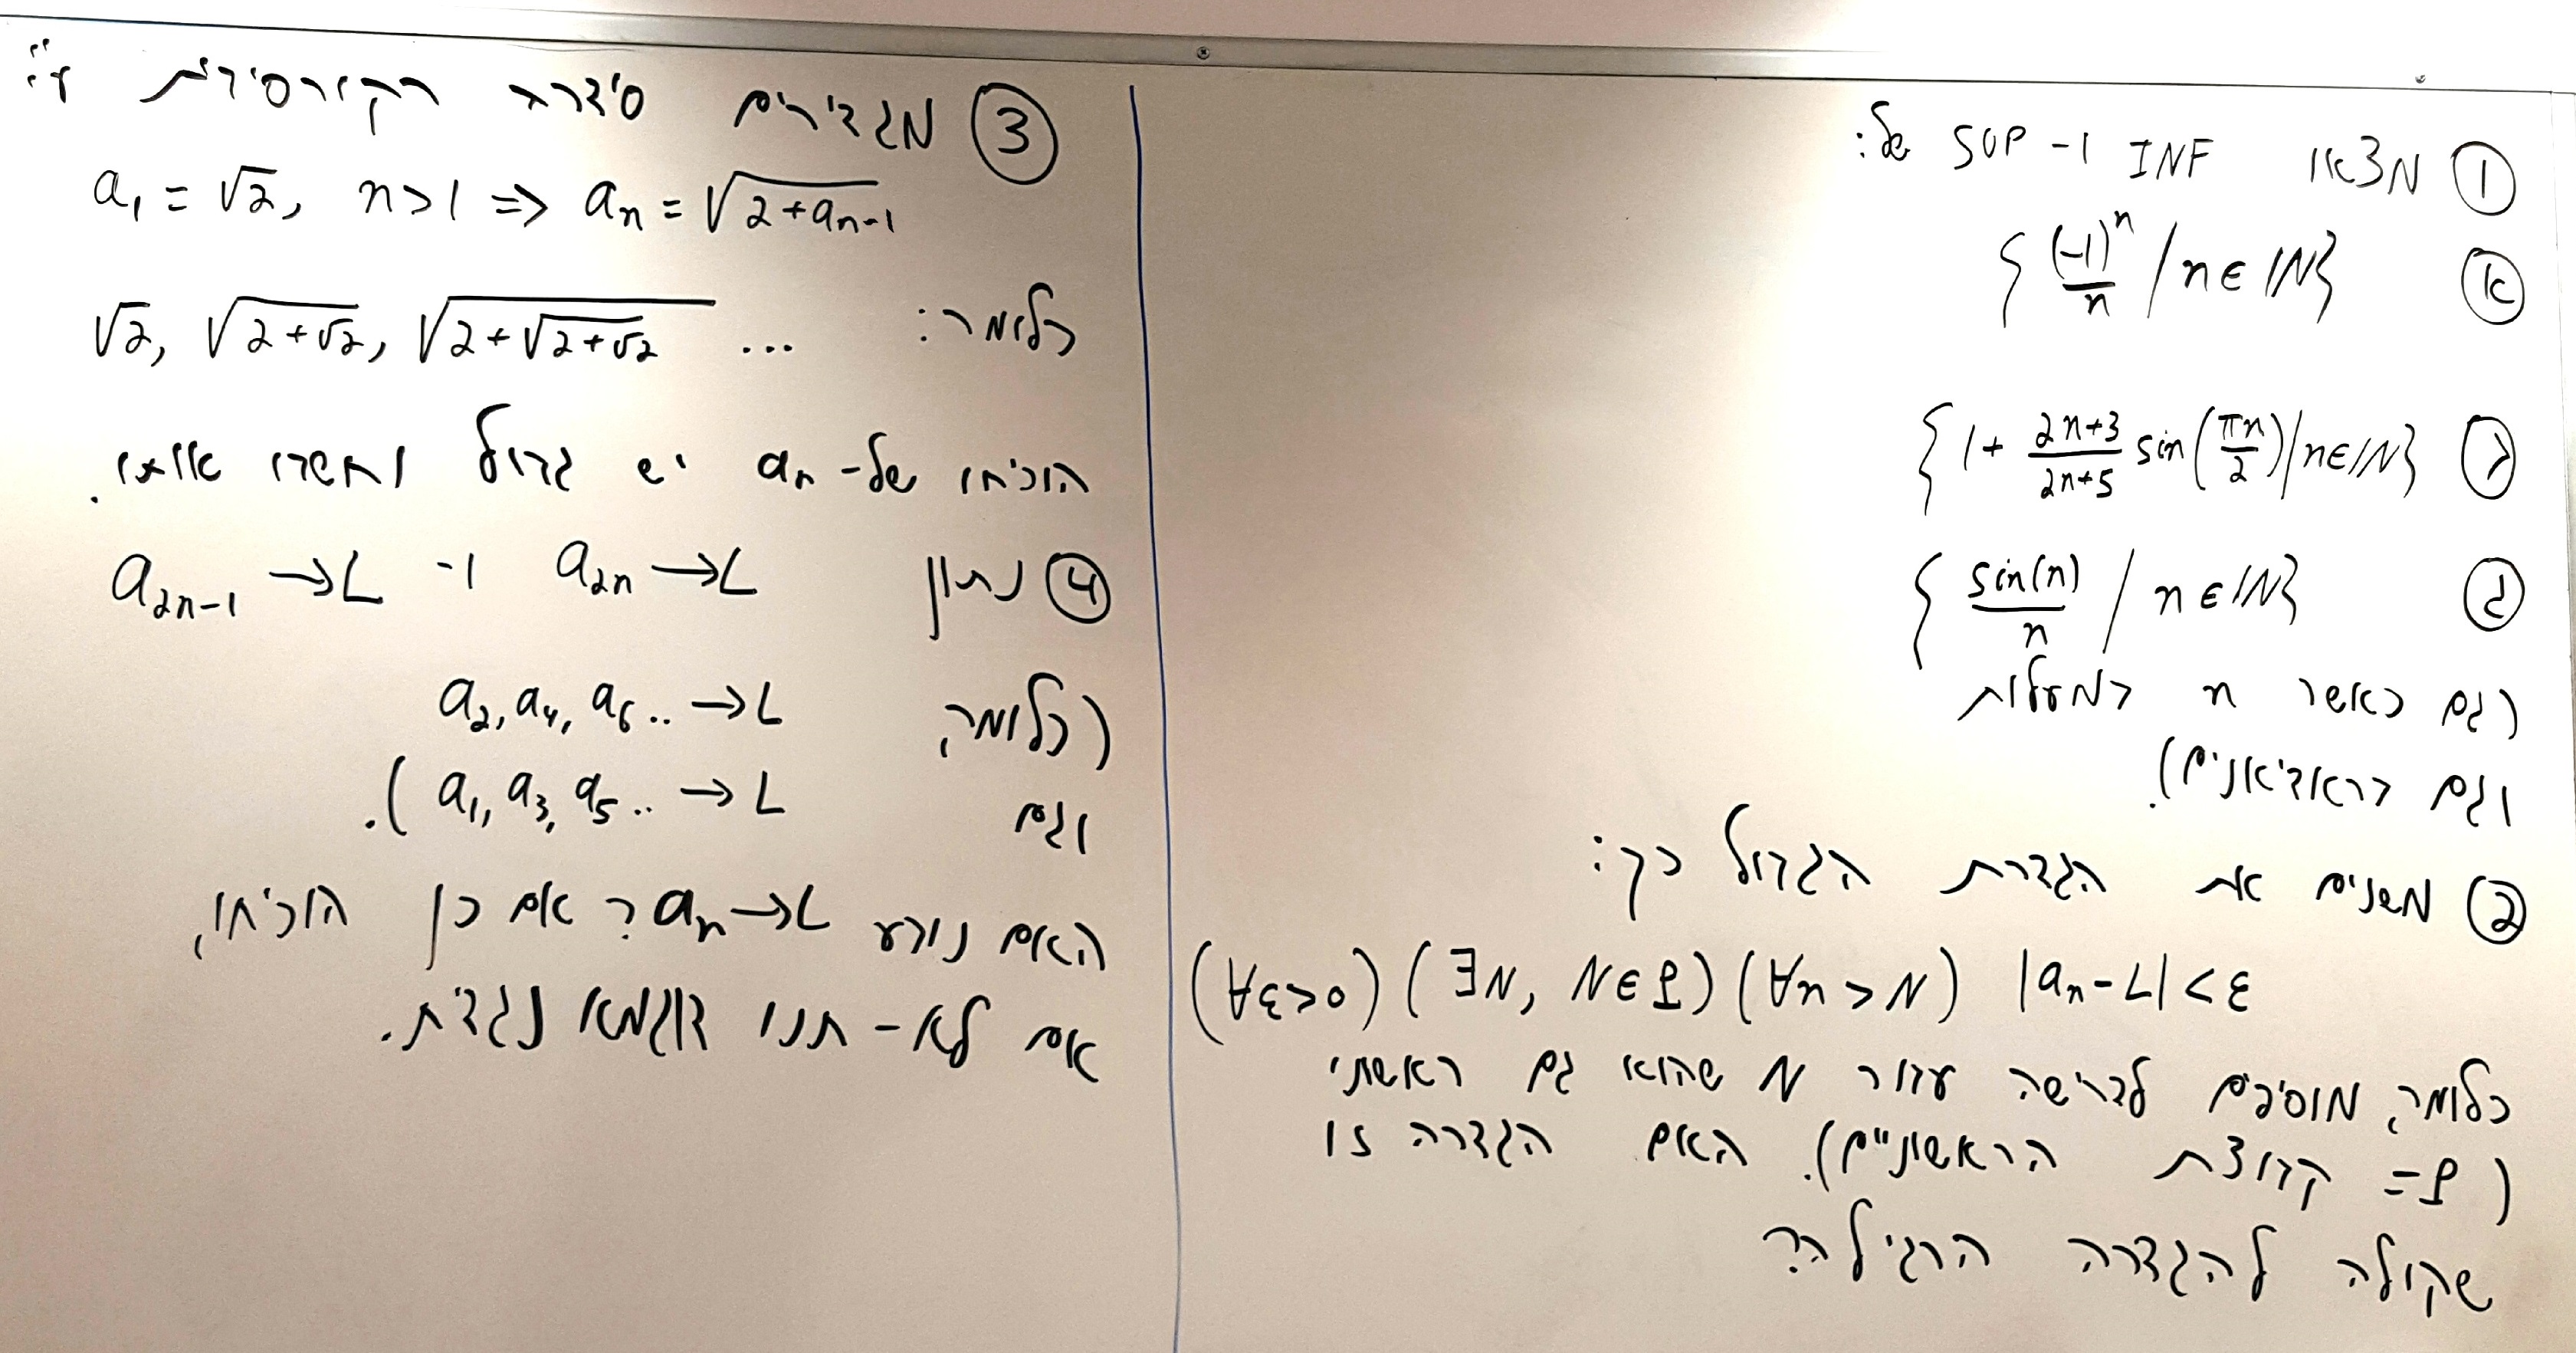 ① מצאו INF ו- SUP של:
א {(-1)ⁿ/n / n∈ℕ}
ב {1 + (2n+3)/(2n+5) sin(πn/2) / n∈ℕ}
ג {sin(n)/n / n∈ℕ}
(גם כאשר n במעלות
וגם ברדיאנים).
② משנים את הגדרת הגבול כך:
(∀ε>0) (∃N, N∈P) (∀n>N) |aₙ-L|<ε
כלומר, מוסיפים לדרישה עבור N שהוא גם ראשוני
(P = קבוצת הראשוניים). האם הגדרה זו
שקולה להגדרה הרגילה?
③ מגדירים סידרה רקורסיבית ע"י:
a₁ = √2, n>1 => aₙ = √(2+aₙ₋₁)
כלומר: √2, √(2+√2), √(2+√(2+√2)) ...
הוכיחו של- aₙ יש גבול וחשבו אותו.
④ נתון a₂ₙ → L ו- a₂ₙ₋₁ → L
(כלומר, a₂, a₄, a₆.. → L
וגם a₁, a₃, a₅.. → L).
האם נובע aₙ → L? אם כן הוכיחו,
אם לא - תנו דוגמא נגדית.